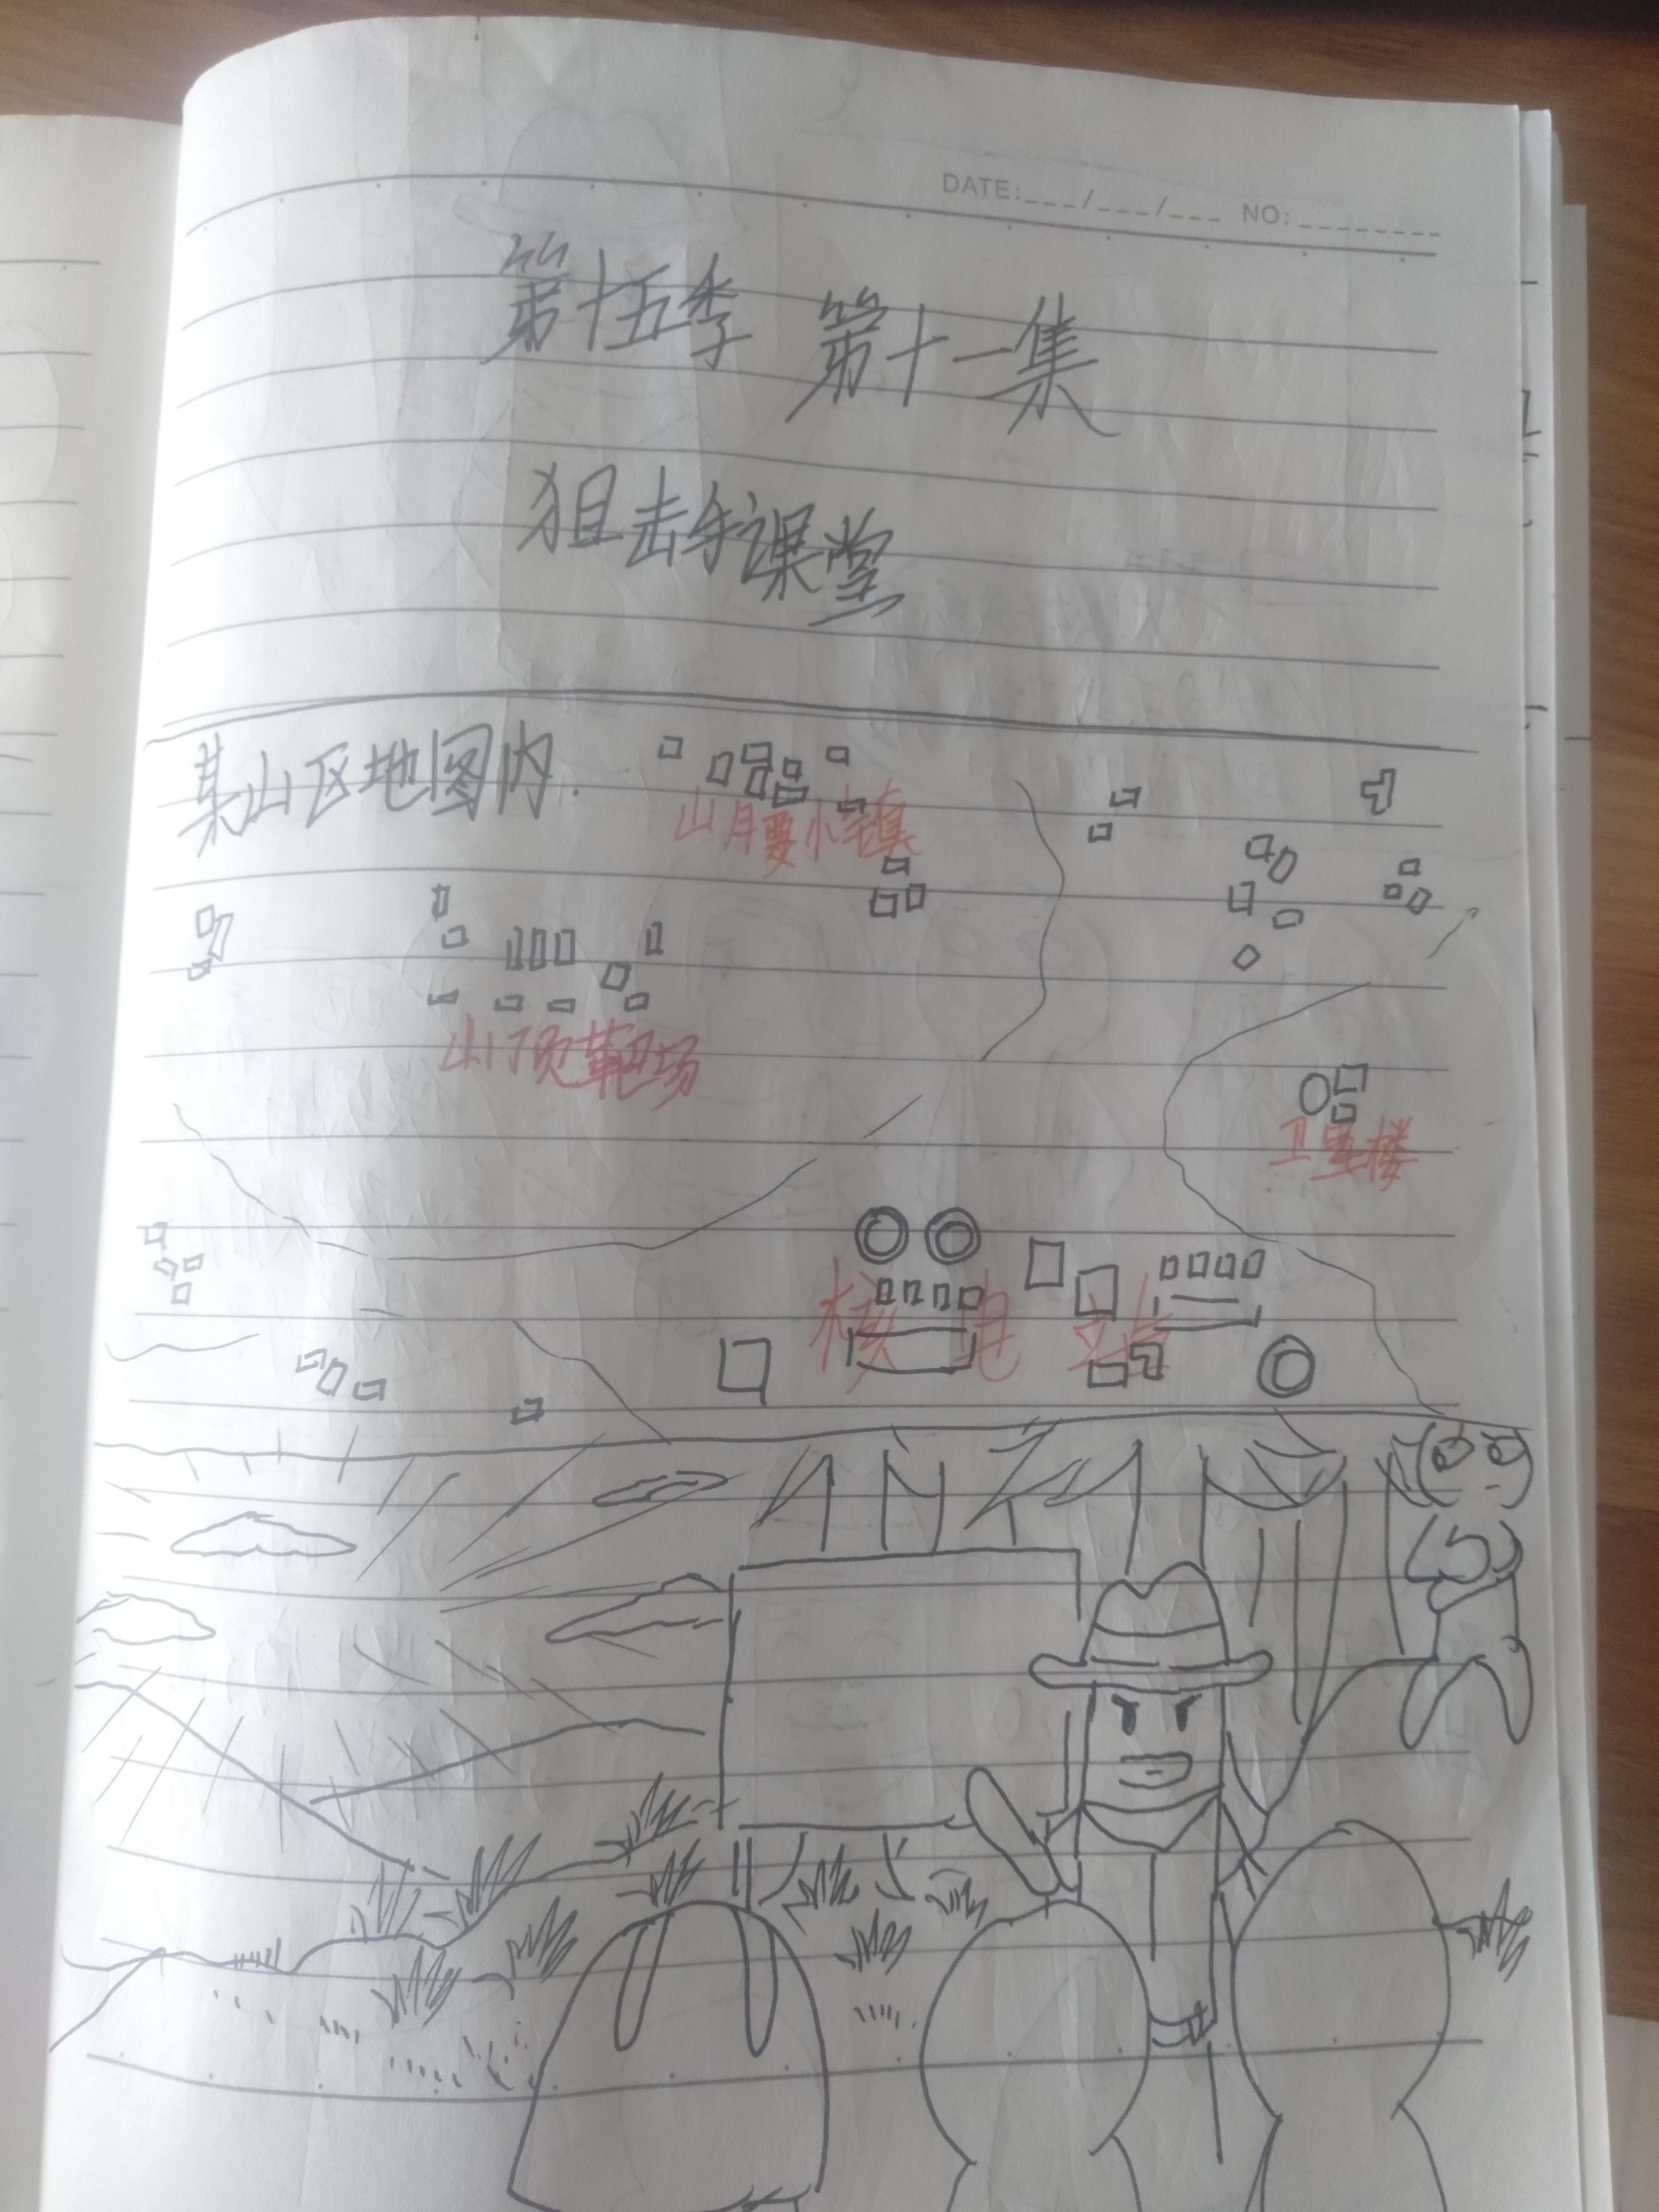 DATE:___/___/___ NO:________
第十五季 第十一集
狙击手课堂
某山区地图内.
山腰小镇
山顶靶场
卫星楼
核电站